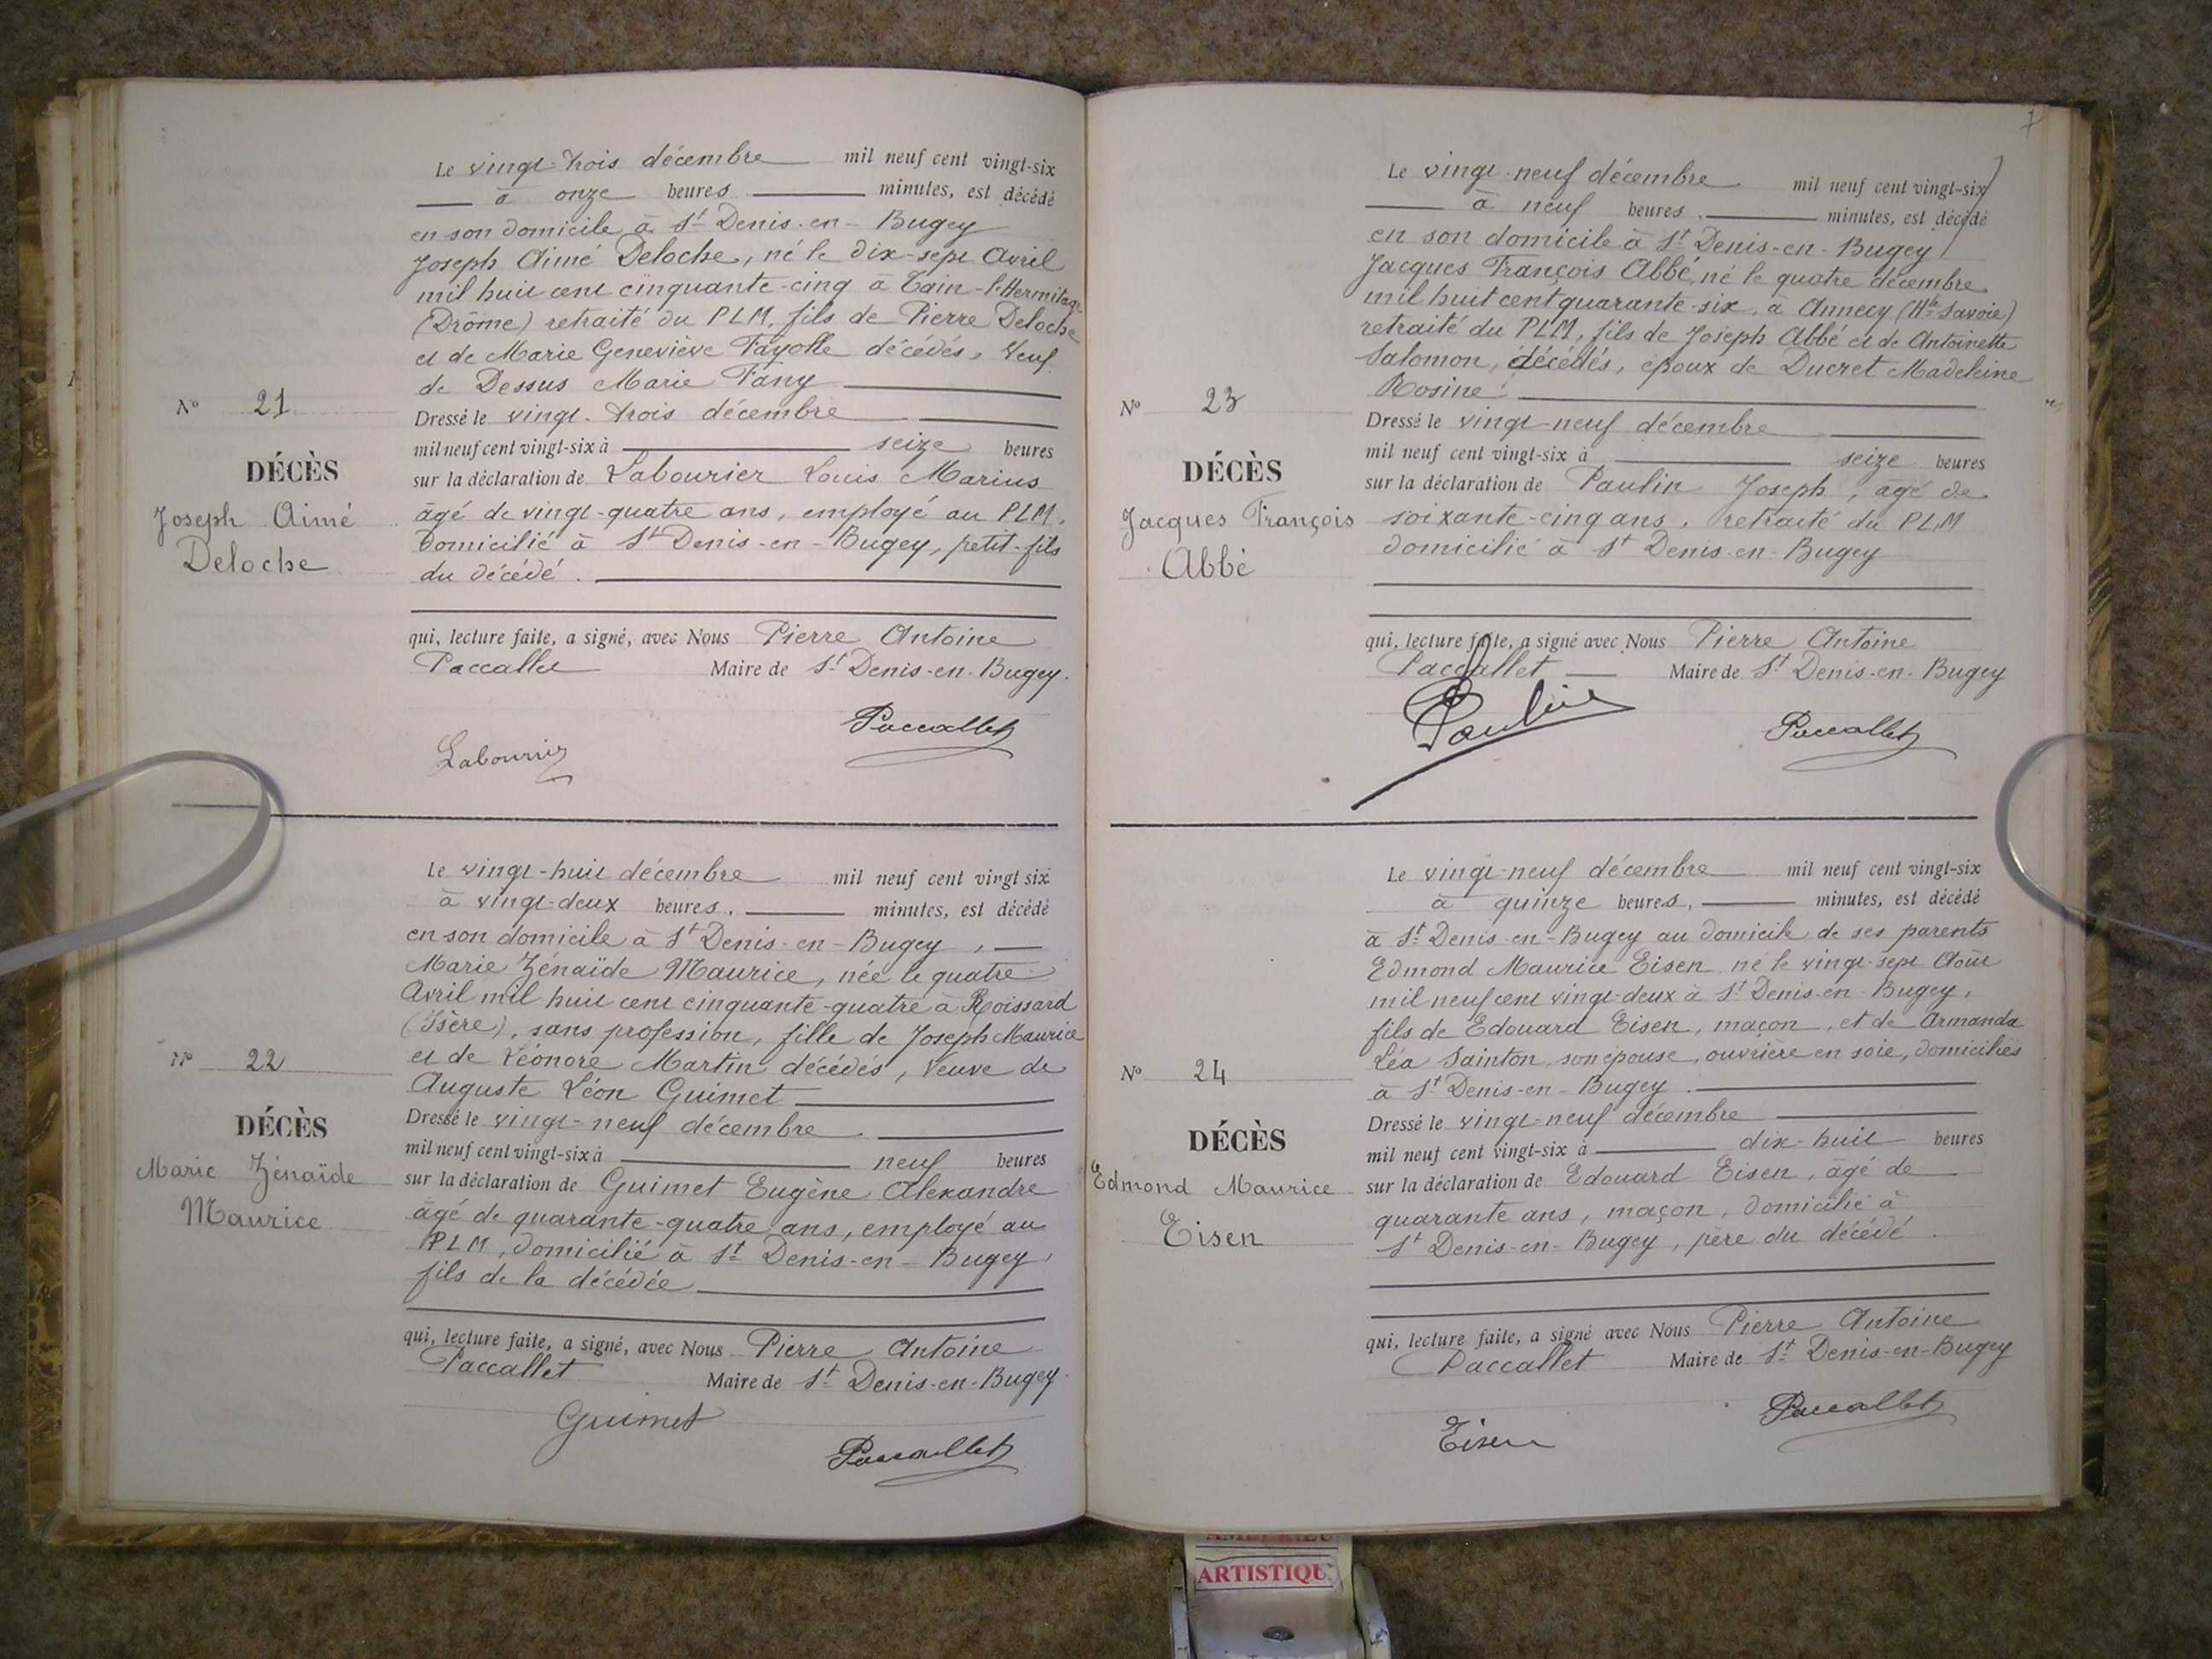 Le vingt-trois décembre mil neuf cent vingt-six
à onze heures minutes, est décédé
en son domicile à St Denis-en-Bugey
Joseph Aimé Deloche, né le dix-sept Avril
mil huit cent cinquante-cinq à Tain-l'Hermitage
(Drôme) retraité du PLM, fils de Pierre Deloche
et de Marie Geneviève Fayolle décédés, Veuf
de Dessus Marie Fany
Nº 21
Dressé le vingt-trois décembre
mil neuf cent vingt-six à seize heures
DÉCÈS
sur la déclaration de Labourier Louis Marius
Joseph Aimé
âgé de vingt-quatre ans, employé au PLM,
Deloche
domicilié à St Denis-en-Bugey, petit-fils
du décédé.
qui, lecture faite, a signé, avec Nous Pierre Antoine
Paccallet Maire de St Denis-en-Bugey.
Paccallet
Labourier
Le vingt-huit décembre mil neuf cent vingt six
à vingt-deux heures, minutes, est décédé
en son domicile à St Denis-en-Bugey,
Marie Zénaïde Maurice, née le quatre
Avril mil huit cent cinquante-quatre à Roissard
(Isère), sans profession, fille de Joseph Maurice
et de Léonore Martin décédés, Veuve de
Nº 22
Auguste Léon Guimet
Dressé le vingt-neuf décembre
DÉCÈS
mil neuf cent vingt-six à neuf heures
Marie Zénaïde
sur la déclaration de Guimet Eugène Alexandre
Maurice
âgé de quarante-quatre ans, employé au
PLM, domicilié à St Denis-en-Bugey,
fils de la décédée
qui, lecture faite, a signé, avec Nous Pierre Antoine
Paccallet Maire de St Denis-en-Bugey.
Guimet
Paccallet
7
Le vingt-neuf décembre mil neuf cent vingt-six
à neuf heures, minutes, est décédé
en son domicile à St Denis-en-Bugey
Jacques François Abbé, né le quatre décembre
mil huit cent quarante-six, à Annecy (Hte Savoie)
retraité du PLM, fils de Joseph Abbé et de Antoinette
Salomon, décédés, époux de Ducret Madeleine
Rosine
Nº 23
Dressé le vingt-neuf décembre
mil neuf cent vingt-six à seize heures
DÉCÈS
sur la déclaration de Paulin Joseph, âgé de
Jacques François
soixante-cinq ans, retraité du PLM
Abbé
domicilié à St Denis-en-Bugey
qui, lecture faite, a signé avec Nous Pierre Antoine
Paccallet Maire de St Denis-en-Bugey
Paulin
Paccallet
Le vingt-neuf décembre mil neuf cent vingt-six
à quinze heures, minutes, est décédé
à St Denis-en-Bugey au domicile de ses parents
Edmond Maurice Eisen né le vingt-sept Août
mil neuf cent vingt-deux à St Denis-en-Bugey,
fils de Edouard Eisen, maçon, et de Armanda
Léa Sainton, son épouse, ouvrière en soie, domiciliés
Nº 24
à St Denis-en-Bugey.
Dressé le vingt-neuf décembre
DÉCÈS
mil neuf cent vingt-six à dix-huit heures
Edmond Maurice
sur la déclaration de Edouard Eisen, âgé de
Eisen
quarante ans, maçon, domicilié à
St Denis-en-Bugey, père du décédé.
qui, lecture faite, a signé avec Nous Pierre Antoine
Paccallet Maire de St Denis-en-Bugey
Paccallet
Eisen
ARTISTIQU